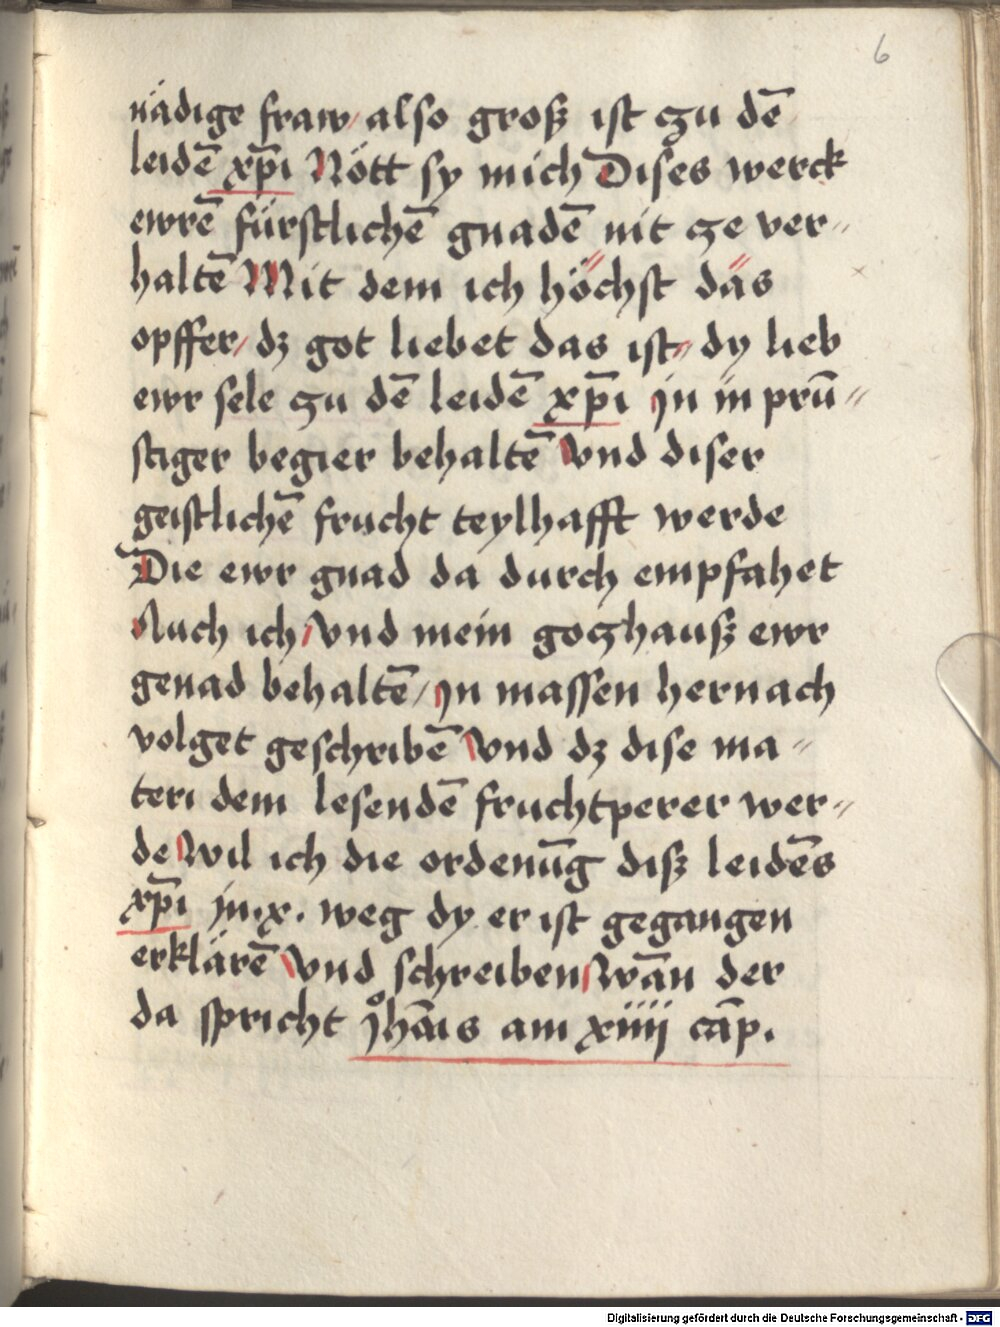 6
nädige fraw/ also groß ist zu dē
leidē xp̄i Nött sy mich Dises werck
ewrē fürstlichē gnadē nit ze ver=
haltē Mit dem ich höchst däs
opffer/ dz got liebet das ist/ dy lieb
ewr sele zu dē leidē xp̄i jn in prū=
stiger begier behaltē Vnd diser
geistlichē frucht teylhafft werde
Die ewr gnad da durch empfahet
Auch ich/ vnd mein gozhauß ewr
genad behaltē/ jn massen hernach
volget geschribē Vnd dz dise ma=
teri dem lesendē fruchtperer wer=
de Wil ich die ordenūg diß leidēs
xp̄i jn .x. weg dy er ist gegangen
erklärē Vnd schreiben/ Wān der
da spricht Joh̄ais am xiiij cāp.
Digitalisierung gefördert durch die Deutsche Forschungsgemeinschaft - DFG